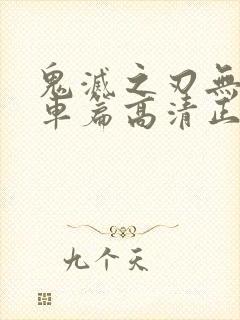 鬼滅之刃無
車篇高清正
九个天